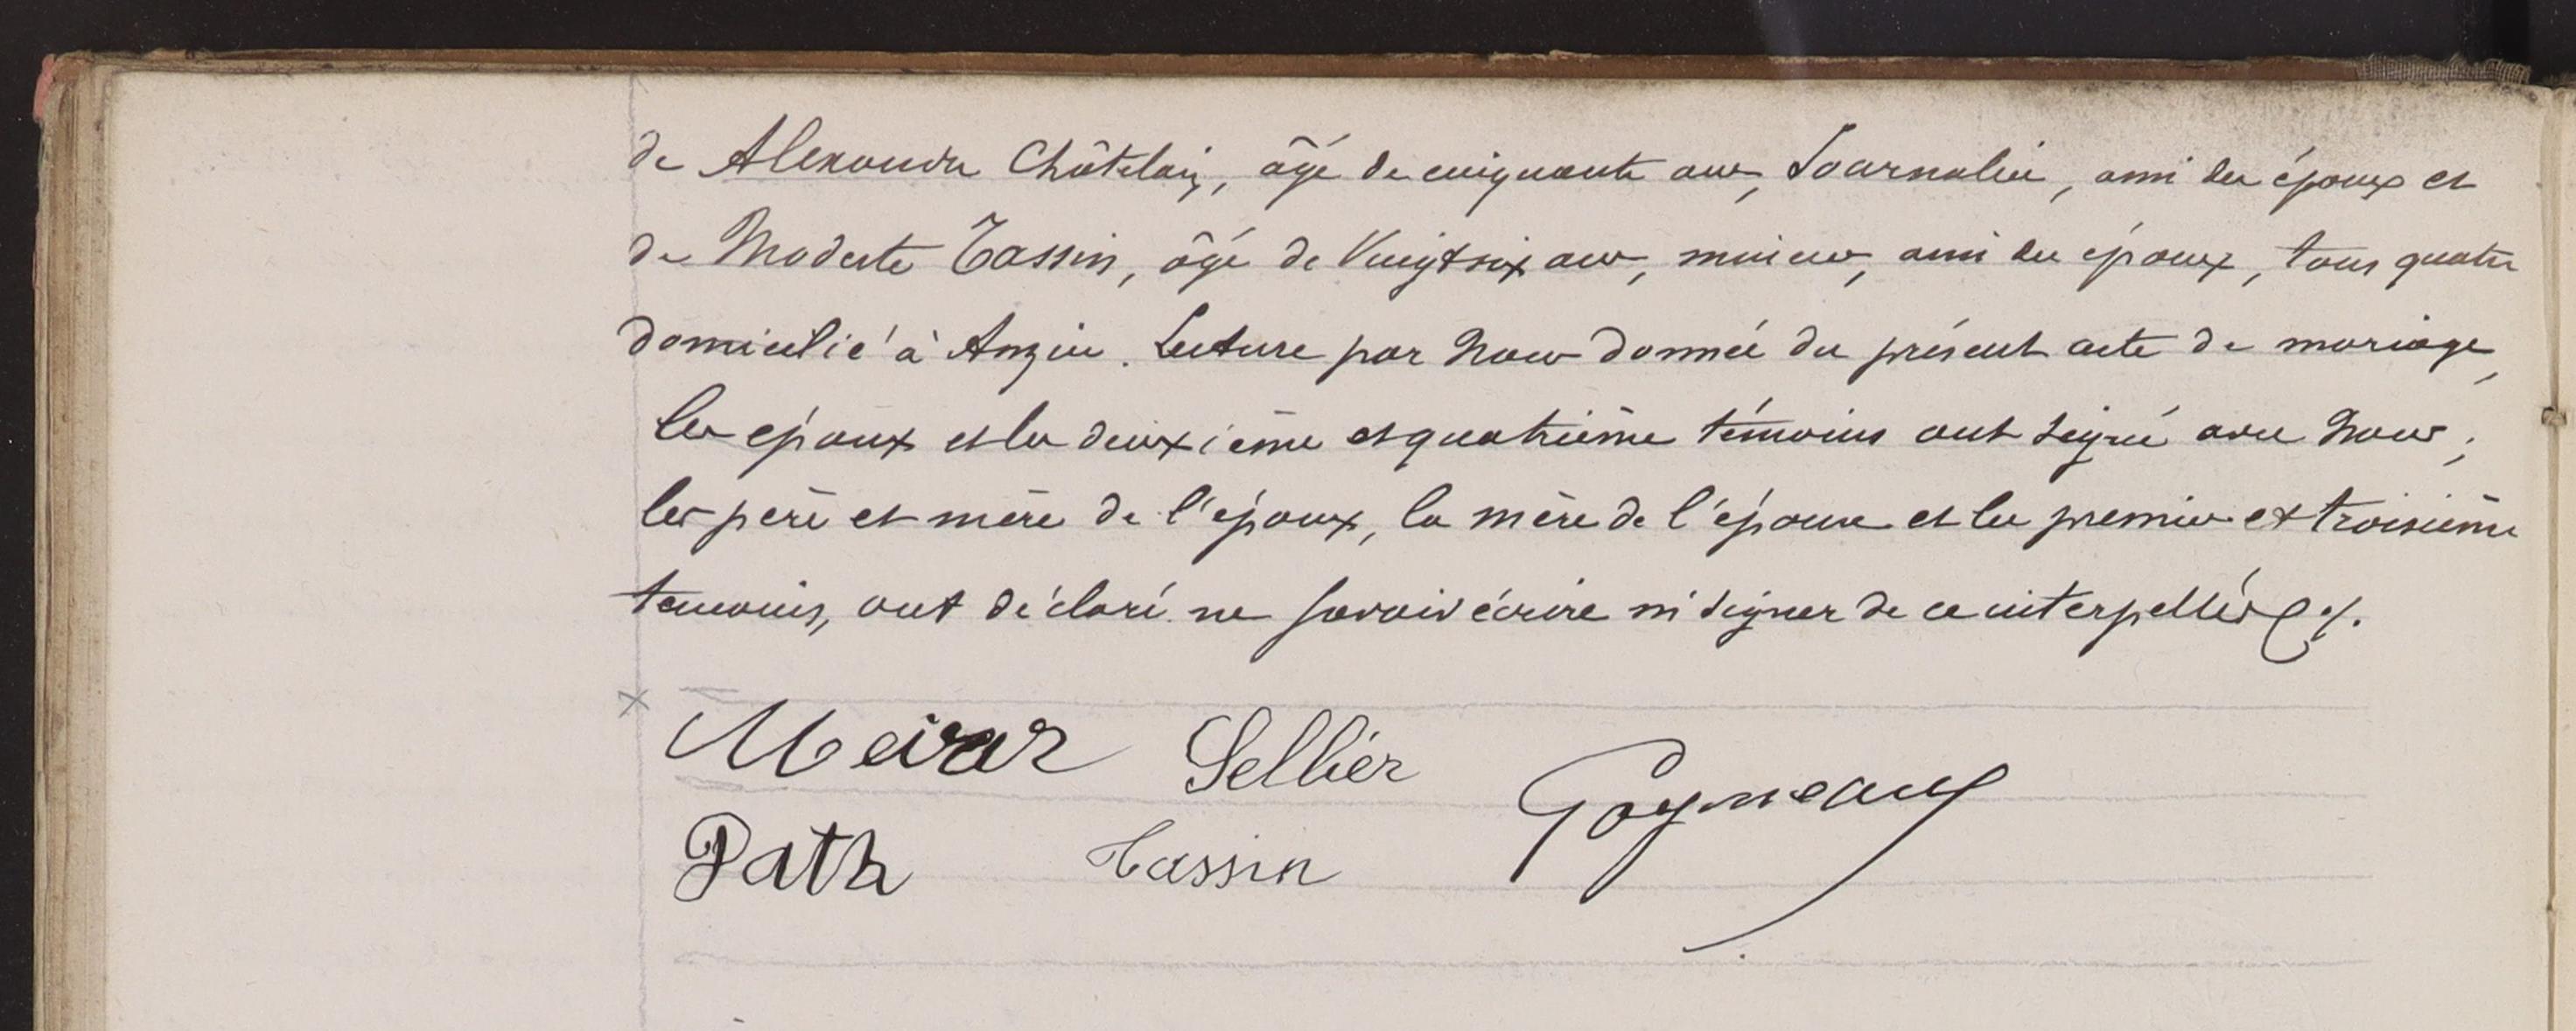 de Alexandre Châtelain, âgé de cinquante ans, Journalier, ami des époux et
de Modeste Tassin, âgé de Vingt six ans, mineur, ami des époux, tous quatre
domicilié à Anzin. Lecture par Nous donnée du présent acte de mariage,
les époux et les deuxième et quatrième témoins ont signé avec Nous ;
les père et mère de l'époux, la mère de l'épouse et les premier et troisième
temoins, ont déclaré ne savoir écrire ni signer de ce interpellés ./.
Sellier
Path Tassin